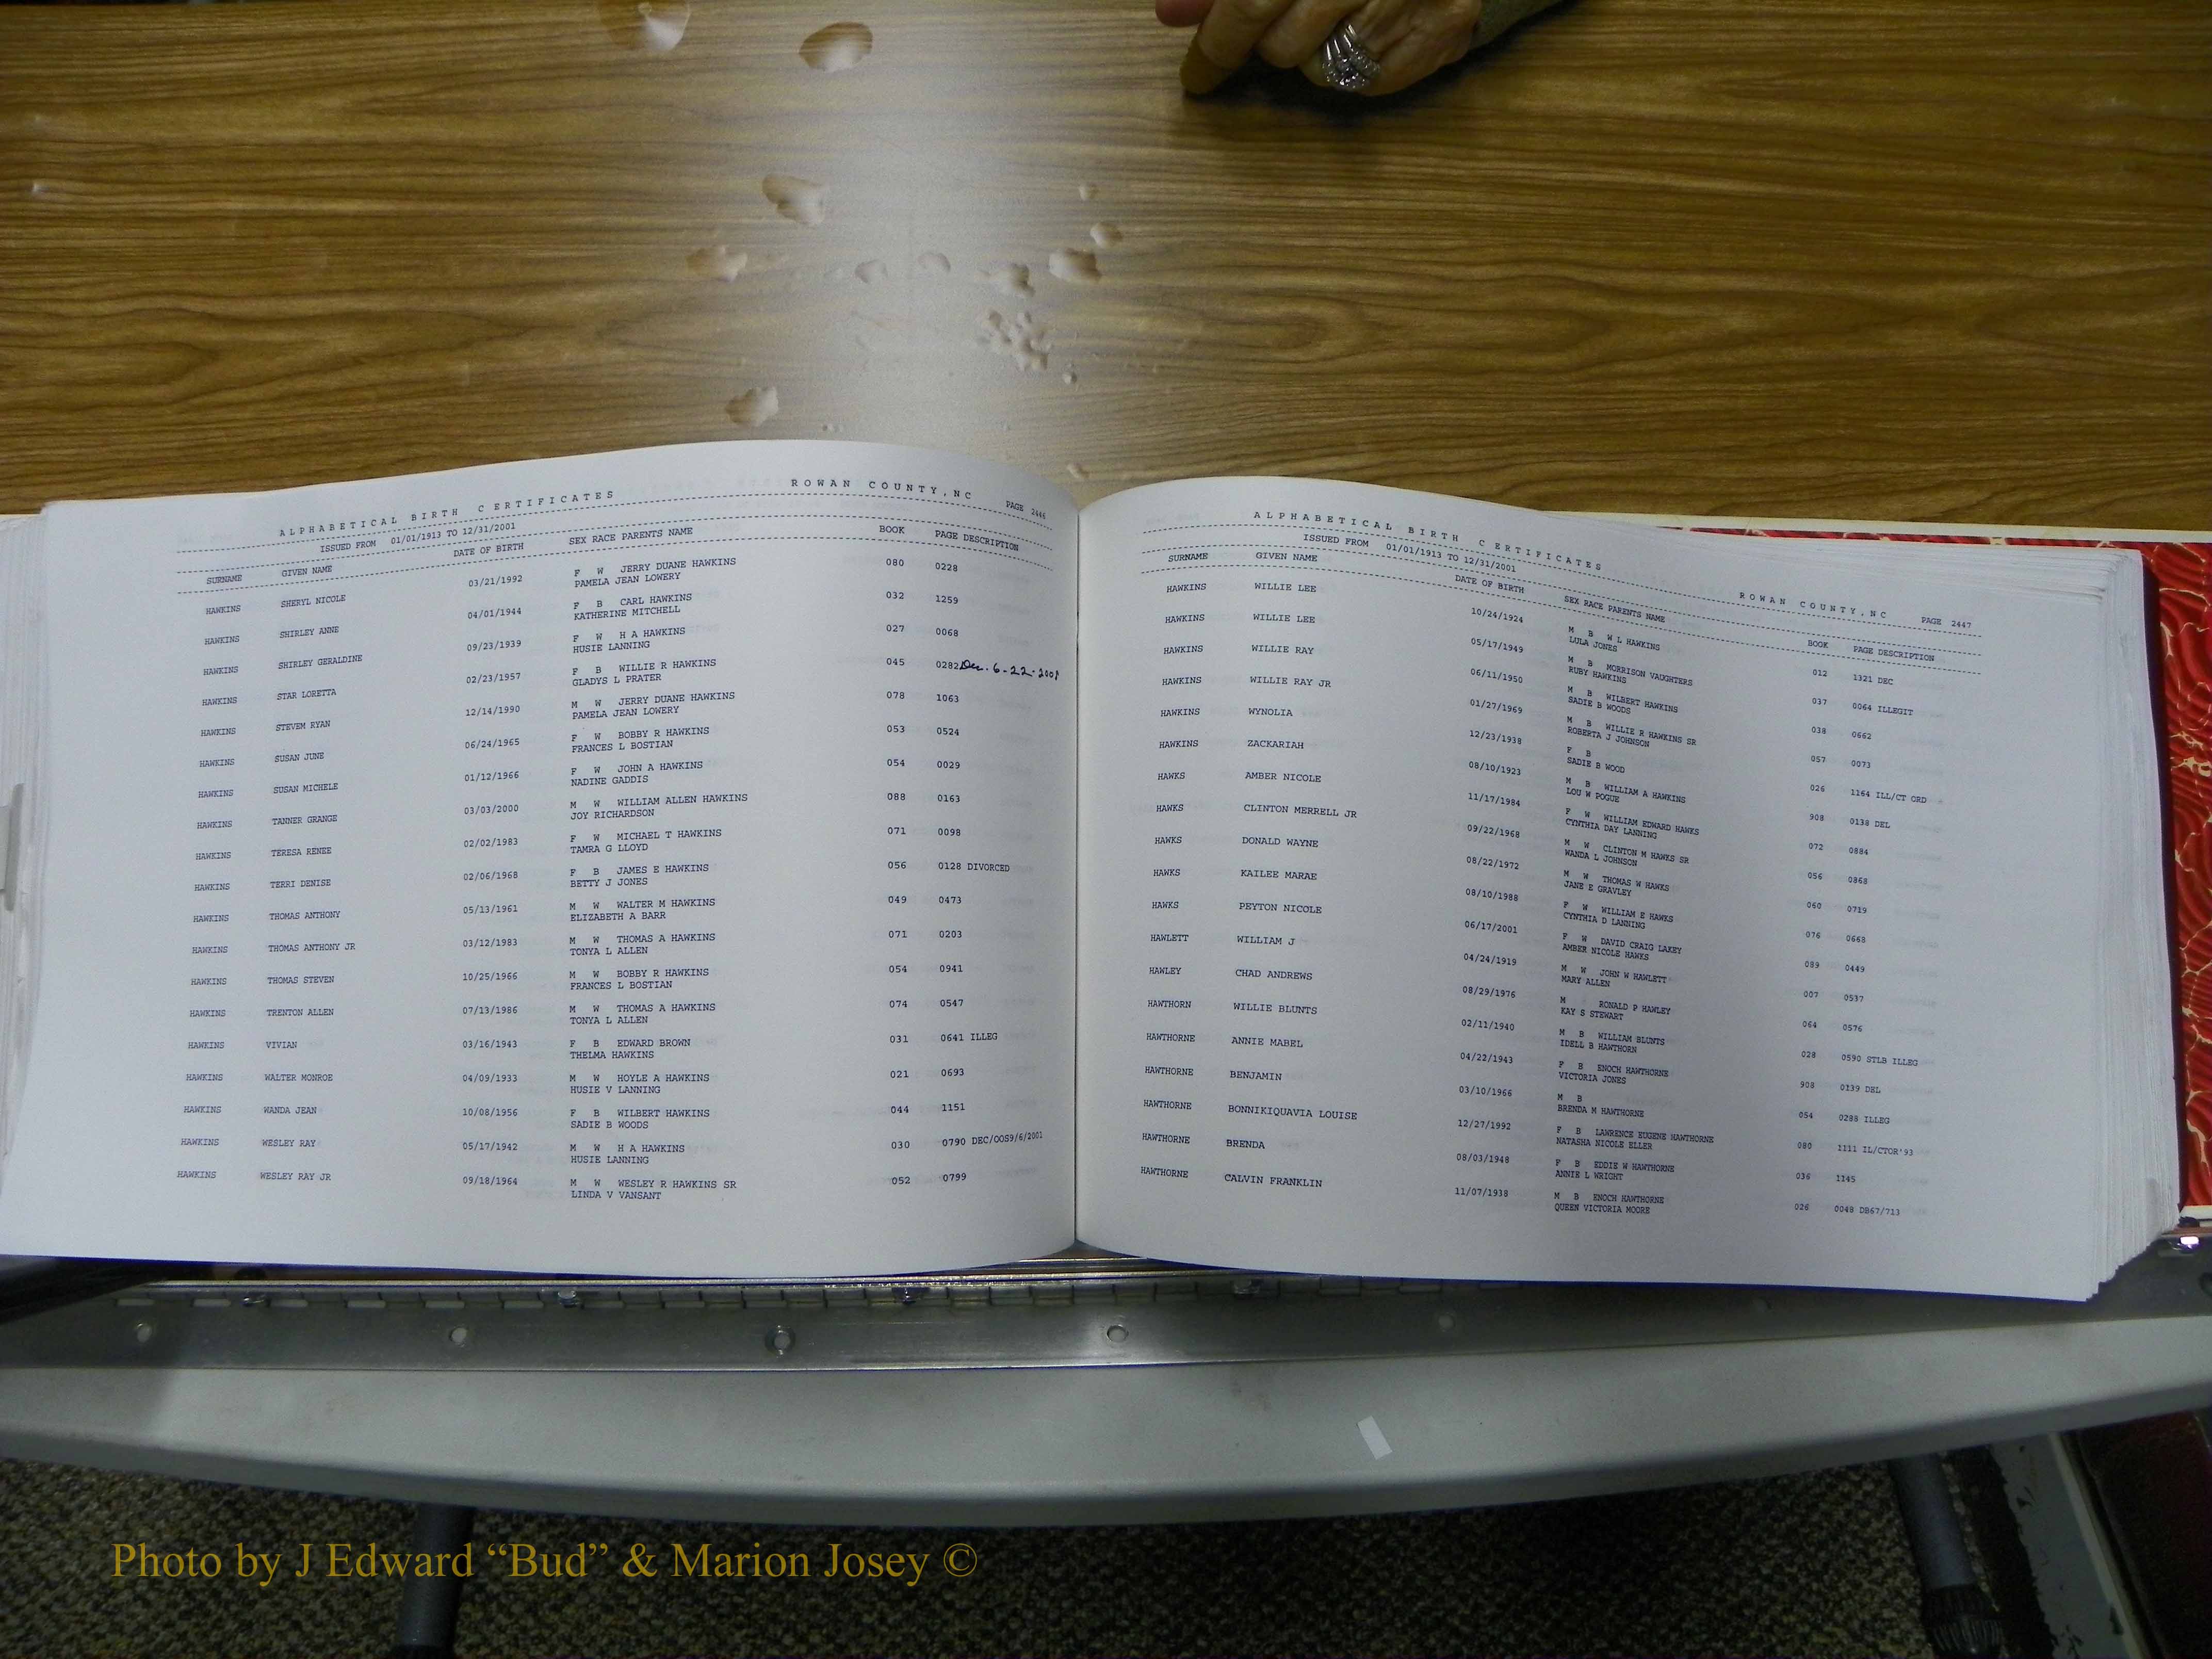 ALPHABETICAL BIRTH CERTIFICATES ROWAN COUNTY, NC PAGE 2446
ISSUED FROM 01/01/1913 TO 12/31/2001
SURNAME GIVEN NAME DATE OF BIRTH SEX RACE PARENTS NAME BOOK PAGE DESCRIPTION
HAWKINS SHERYL NICOLE 03/21/1992 F W JERRY DUANE HAWKINS 080 0228
PAMELA JEAN LOWERY
HAWKINS SHIRLEY ANNE 04/01/1944 F B CARL HAWKINS 032 1259
KATHERINE MITCHELL
HAWKINS SHIRLEY GERALDINE 09/23/1939 F W H A HAWKINS 027 0068
HUSIE LANNING
HAWKINS STAR LORETTA 02/23/1957 F B WILLIE R HAWKINS 045 0282 Dec. 6-22-2008
GLADYS L PRATER
HAWKINS STEVEM RYAN 12/14/1990 M W JERRY DUANE HAWKINS 078 1063
PAMELA JEAN LOWERY
HAWKINS SUSAN JUNE 06/24/1965 F W BOBBY R HAWKINS 053 0524
FRANCES L BOSTIAN
HAWKINS SUSAN MICHELE 01/12/1966 F W JOHN A HAWKINS 054 0029
NADINE GADDIS
HAWKINS TANNER GRANGE 03/03/2000 M W WILLIAM ALLEN HAWKINS 088 0163
JOY RICHARDSON
HAWKINS TERESA RENEE 02/02/1983 F W MICHAEL T HAWKINS 071 0098
TAMRA G LLOYD
HAWKINS TERRI DENISE 02/06/1968 F B JAMES E HAWKINS 056 0128 DIVORCED
BETTY J JONES
HAWKINS THOMAS ANTHONY 05/13/1961 M W WALTER M HAWKINS 049 0473
ELIZABETH A BARR
HAWKINS THOMAS ANTHONY JR 03/12/1983 M W THOMAS A HAWKINS 071 0203
TONYA L ALLEN
HAWKINS THOMAS STEVEN 10/25/1966 M W BOBBY R HAWKINS 054 0941
FRANCES L BOSTIAN
HAWKINS TRENTON ALLEN 07/13/1986 M W THOMAS A HAWKINS 074 0547
TONYA L ALLEN
HAWKINS VIVIAN 03/16/1943 F B EDWARD BROWN 031 0641 ILLEG
THELMA HAWKINS
HAWKINS WALTER MONROE 04/09/1933 M W HOYLE A HAWKINS 021 0693
HUSIE V LANNING
HAWKINS WANDA JEAN 10/08/1956 F B WILBERT HAWKINS 044 1151
SADIE B WOODS
HAWKINS WESLEY RAY 05/17/1942 M W H A HAWKINS 030 0790 DEC/OOS9/6/2001
HUSIE LANNING
HAWKINS WESLEY RAY JR 09/18/1964 M W WESLEY R HAWKINS SR 052 0799
LINDA V VANSANT
ALPHABETICAL BIRTH CERTIFICATES ROWAN COUNTY, NC PAGE 2447
ISSUED FROM 01/01/1913 TO 12/31/2001
SURNAME GIVEN NAME DATE OF BIRTH SEX RACE PARENTS NAME BOOK PAGE DESCRIPTION
HAWKINS WILLIE LEE 10/24/1924 M B W L HAWKINS 012 1321 DEC
LULA JONES
HAWKINS WILLIE LEE 05/17/1949 M B MORRISON VAUGHTERS 037 0064 ILLEGIT
RUBY HAWKINS
HAWKINS WILLIE RAY 06/11/1950 M B WILBERT HAWKINS 038 0662
SADIE B WOODS
HAWKINS WILLIE RAY JR 01/27/1969 M B WILLIE R HAWKINS SR 057 0073
ROBERTA J JOHNSON
HAWKINS WYNOLIA 12/23/1938 F B 026 1164 ILL/CT ORD
SADIE B WOOD
HAWKINS ZACKARIAH 08/10/1923 M B WILLIAM A HAWKINS 908 0138 DEL
LOU W POGUE
HAWKS AMBER NICOLE 11/17/1984 F W WILLIAM EDWARD HAWKS 072 0884
CYNTHIA DAY LANNING
HAWKS CLINTON MERRELL JR 09/22/1968 M W CLINTON M HAWKS SR 056 0868
WANDA L JOHNSON
HAWKS DONALD WAYNE 08/22/1972 M W THOMAS W HAWKS 060 0719
JANE E GRAVLEY
HAWKS KAILEE MARAE 08/10/1988 F W WILLIAM E HAWKS 076 0668
CYNTHIA D LANNING
HAWKS PEYTON NICOLE 06/17/2001 F W DAVID CRAIG LAKEY 089 0449
AMBER NICOLE HAWKS
HAWLETT WILLIAM J 04/24/1919 M W JOHN W HAWLETT 007 0537
MARY ALLEN
HAWLEY CHAD ANDREWS 08/29/1976 M RONALD P HAWLEY 064 0576
KAY S STEWART
HAWTHORN WILLIE BLUNTS 02/11/1940 M B WILLIAM BLUNTS 028 0590 STLB ILLEG
IDELL B HAWTHORN
HAWTHORNE ANNIE MABEL 04/22/1943 F B ENOCH HAWTHORNE 908 0139 DEL
VICTORIA JONES
HAWTHORNE BENJAMIN 03/10/1966 M B 054 0288 ILLEG
BRENDA M HAWTHORNE
HAWTHORNE BONNIKIQUAVIA LOUISE 12/27/1992 F B LAWRENCE EUGENE HAWTHORNE 080 1111 IL/CTOR'93
NATASHA NICOLE ELLER
HAWTHORNE BRENDA 08/03/1948 F B EDDIE W HAWTHORNE 036 1145
ANNIE L WRIGHT
HAWTHORNE CALVIN FRANKLIN 11/07/1938 M B ENOCH HAWTHORNE 026 0048 DB67/713
QUEEN VICTORIA MOORE
Photo by J Edward “Bud” & Marion Josey ©